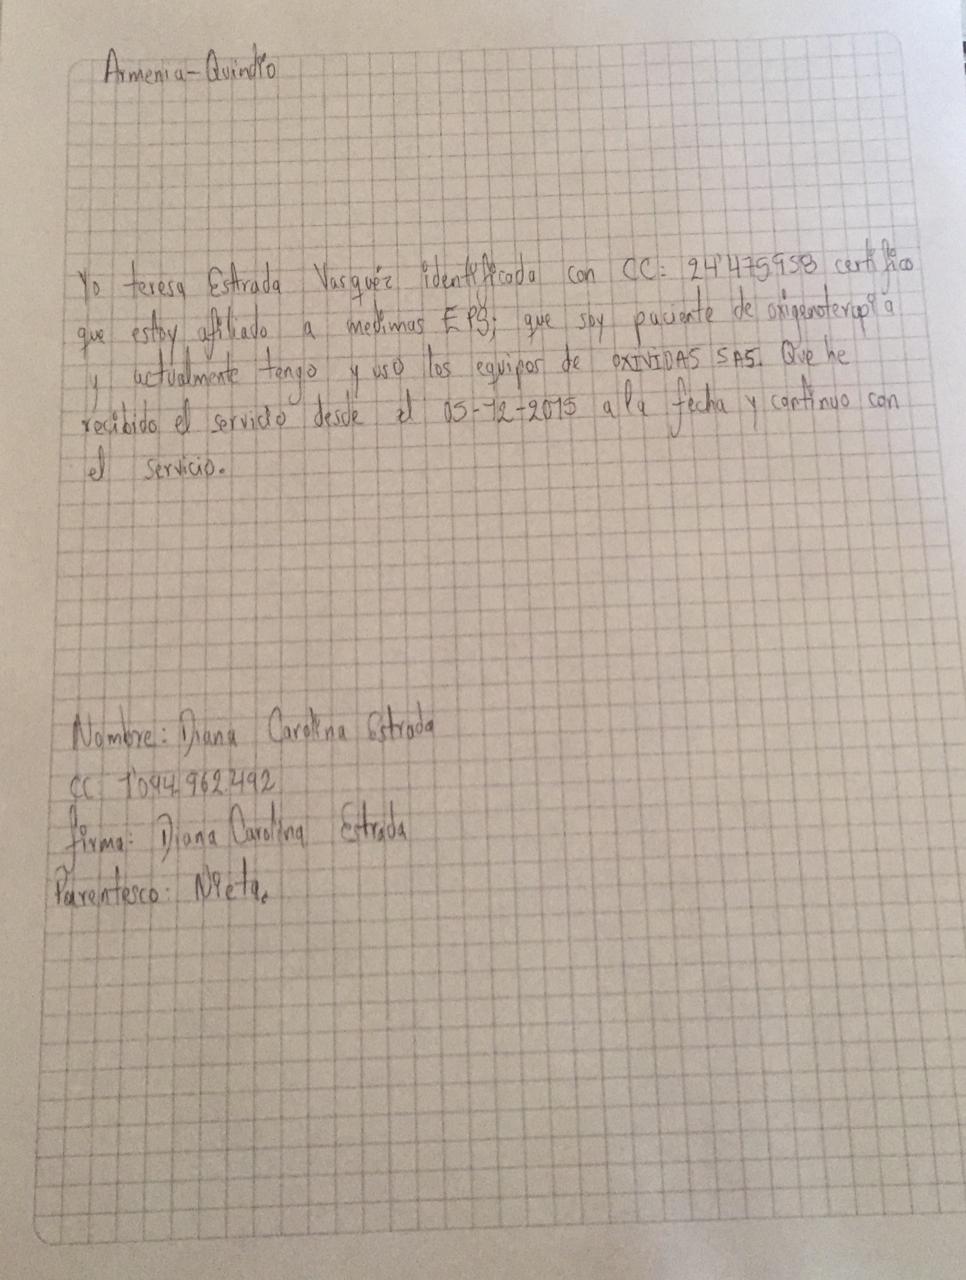 Armenia-Quindío
Yo teresa Estrada Vasquéz identificada con CC: 24'475958 certifico
que estoy afiliado a medimas EPS; que soy paciente de oxigenoterapia
y actualmente tengo y uso los equipos de OXIVIDAS SAS. Que he
recibido el servicio desde el 05-12-2015 a la fecha y continuo con
el servicio.
Nombre: Diana Carolina Estrada
CC 1'094.962.492
firma: Diana Carolina Estrada
Parentesco: Nieta.